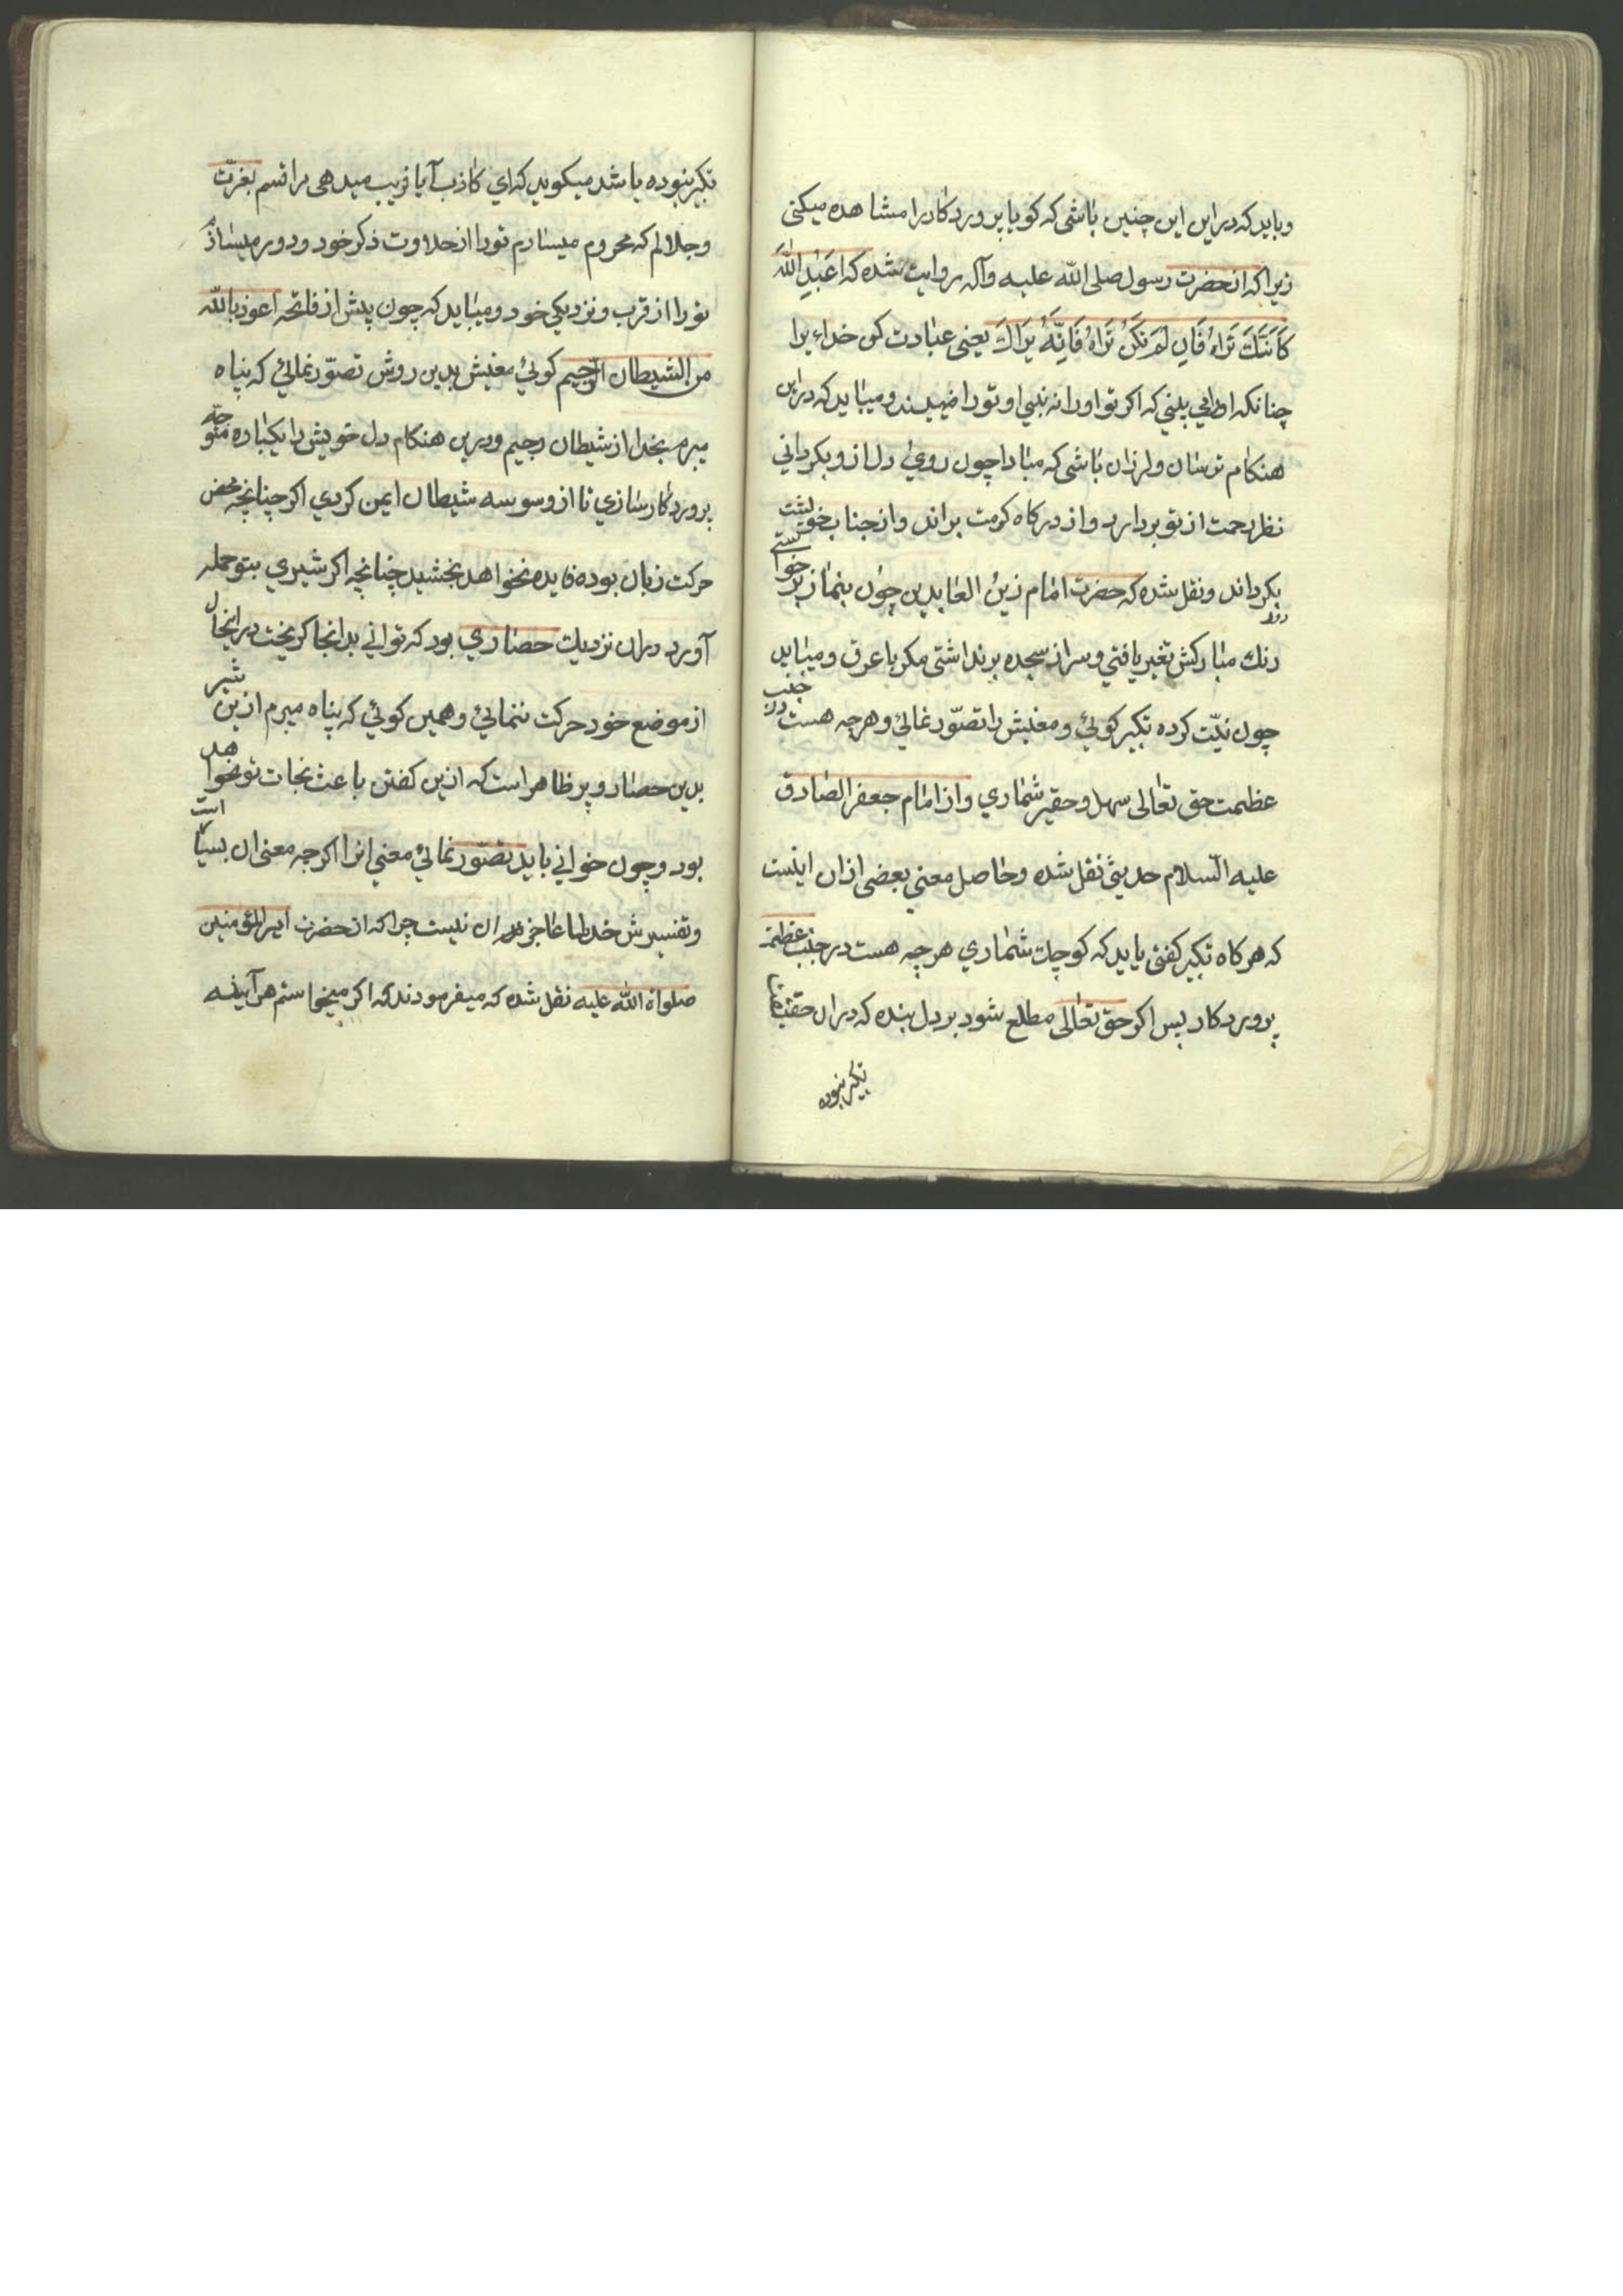 وبايد كه دراين اين چنين باشى كه كويا پروردكار را مشاهده ميكنى
زيرا كه از حضرت رسول صلى الله عليه وآله روايت شده كه اعبد الله
كَاَنَّكَ تَراهُ فَاِن لَم تَكُن تَراهُ فَاِنَّهُ يَراكَ يعنى عبادت كن خداء را
چنانكه اورا مي بيني كه اكر تو اورا نه بيني او تو را ميبيند و ميبايد كه دراين
هنكام ترسان ولرزان باشى كه مبادا چون روي دل از و بكرداني
نظر رحمت از تو بردارد و از دركاه كرمت براند و از جناب خو پشت
بكرداند و نقل شده كه حضرت امام زين العابدين چون بنماز برخواستي
رنك مباركش تغير يافتي و سر از سجده بر نداشتى مكر با عرق و ميبايد
چون نيّت كرده تكبير كوئي و معنيش را تصوّر نمائي و هرچه هست در جنب
عظمت حق تعالى سهل و حقير شماري و از امام جعفر الصادق
عليه السلام حديثى نقل شده و حاصل معني بعضى ازان اينست
كه هركاه تكبير كفتى بايد كه كوچك شماري هرچه هست در جنب عظمة
پروردكار پس اكر حق تعالى مطلع شود بر دل بنده كه دران حقيقتا
تكبير نبوده
تكبير نبوده باشد ميكويد كه اي كاذب آيا فريب ميدهى مرا قسم بعزّت
و جلالم كه محروم ميسازم تورا از حلاوت ذكر خود و دور ميسازم
تورا از قرب و نزديكي خود و ميبايد كه چون پيش از فاتحه اعوذ بالله
من الشيطان الرّجيم كوئي معنيش بدين روش تصوّر نمائي كه پناه
ميبرم بخدا از شيطان رجيم و درين هنكام دل خويش را يكباره متوجّه
پروردكار سازي تا از وسوسه شيطان ايمن كردي اكر چنانچه محض
حركت زبان بوده فايده نخواهد بخشيد چنانچه اكر شيري بتو حمله
آورد و دران نزديك حصاري بود كه تواني بدانجا كريخت در اينحال
از موضع خود حركت ننمائي و همين كوئي كه پناه ميبرم ازين شير
بدين حصار و پر ظاهر است كه ازين كفتن باعث نجات تو نخواهد
بود و چون خواني بايد تصوّر نمائي معني انرا اكرچه معنى ان بسيار است
و تفسيرش خدا عاجز ان نيست چرا كه از حضرت امير المؤمنين
صلواة الله عليه نقل شده كه ميفرمودند كه اكر ميخواستم هرآينه